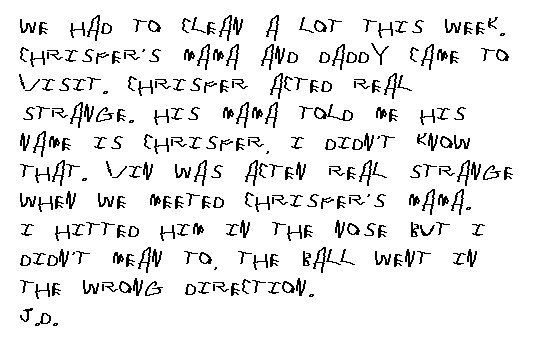 WE HAD TO CLEAN A LOT THIS WEEK.
CHRISFER'S MAMA AND DADDY CAME TO
VISIT. CHRISFER ACTED REAL
STRANGE. HIS MAMA TOLD ME HIS
NAME IS CHRISFER, I DIDN'T KNOW
THAT. VIN WAS ACTEN REAL STRANGE
WHEN WE MEETED CHRISFER'S MAMA.
I HITTED HIM IN THE NOSE BUT I
DIDN'T MEAN TO, THE BALL WENT IN
THE WRONG DIRECTION.
J.D.